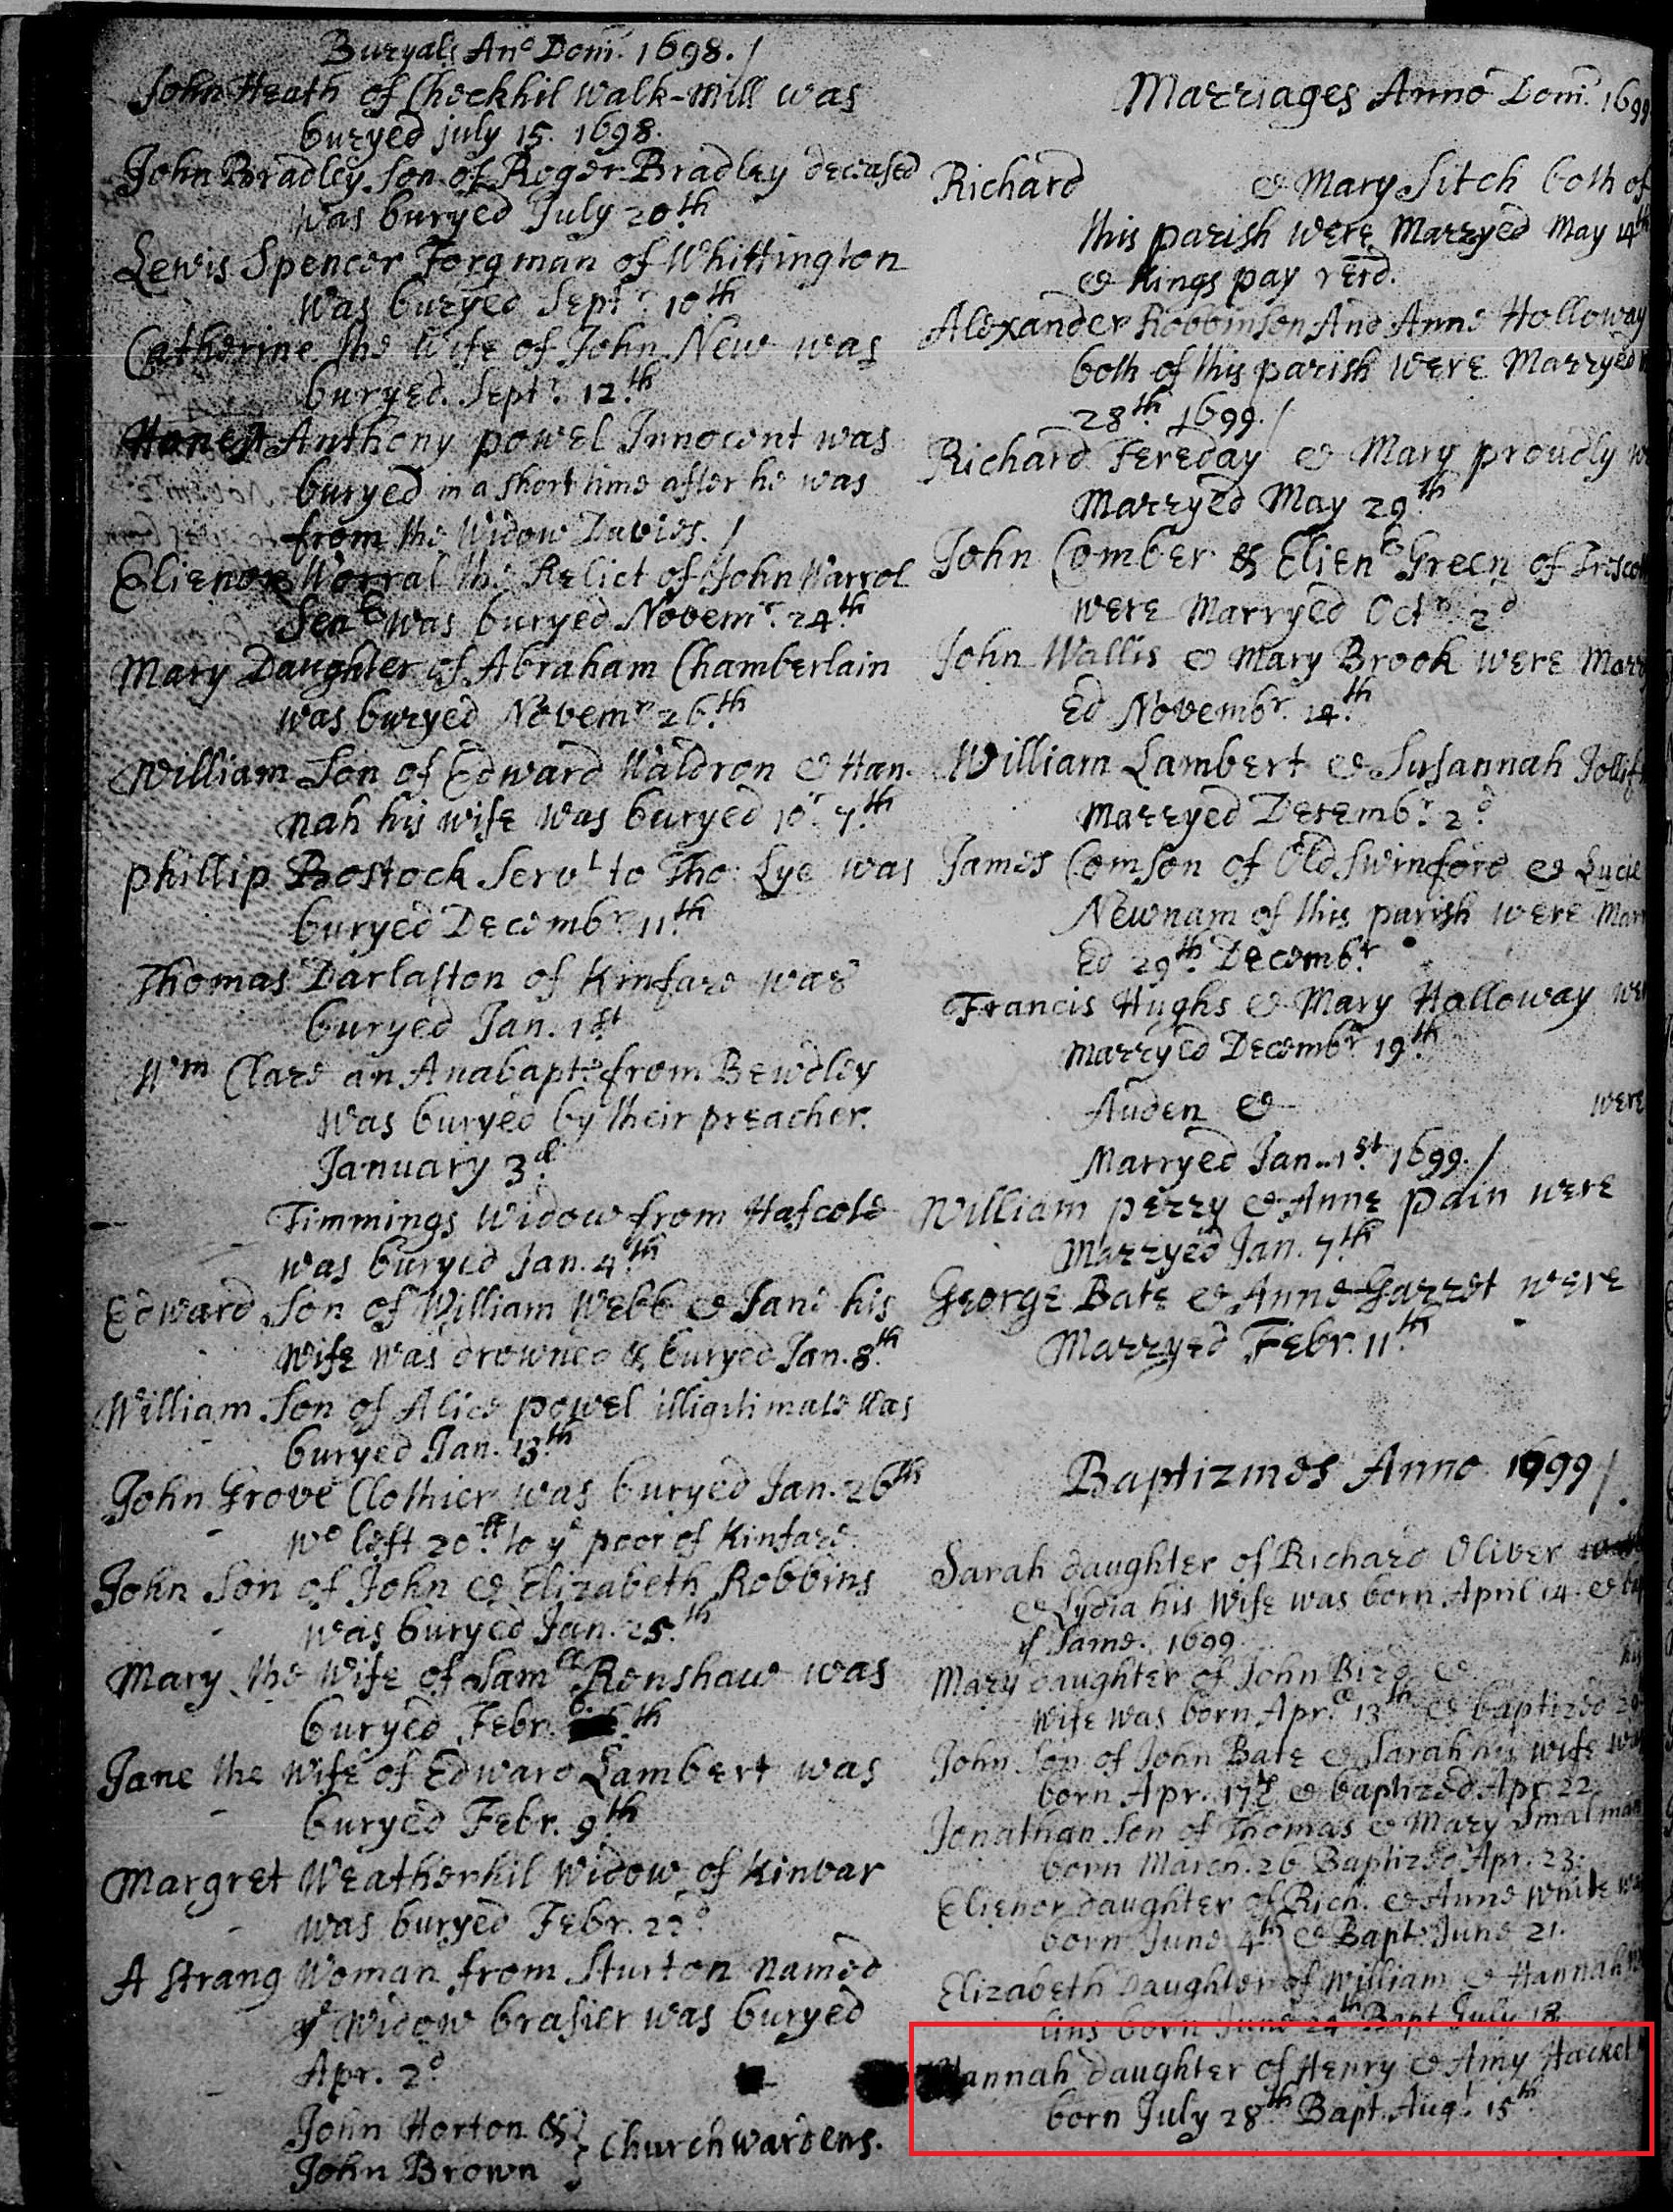 Buryals Ano Dom. 1698. /
John Heath of Chockhil Walk-Mill was
buryed july 15. 1698.
John Bradley Son of Roger Bradley decoased
was buryed July 20th
Lewis Spencer Forgman of Whittington
was buryed Septr. 10th
Catherine the wife of John New was
buryed. Septr. 12th
Anthony powel Innocent was
buryed in a short time after he was
from the Widow Davies. /
Elienor Worral the Relict of John Warrol
Senr was buryed Novemr. 24th
Mary Daughter of Abraham Chamberlain
was buryed Novemr 26th
William Son of Edward Waldron & Han-
nah his wife was buryed 10r 7th
phillip Bostock Servt to Tho: Lye was
buryed Decembr 11th
Thomas Darlaston of Kinfare was
buryed Jan. 1st
Wm Clare an Anabapt: from Bewdley
was buryed by their preacher.
January 3d
Timmings Widow from Hafcole
was buryed Jan. 4th
Edward Son of William Webb & Jane his
wife was drowned & buryed Jan. 8th
William Son of Alice powel illigitimate was
buryed Jan. 13th
John Grove Clothier was buryed Jan. 26th
wo left 20ll to ye poor of Kinfare
John Son of John & Elizabeth Robbins
was buryed Jan. 25th
Mary the wife of Samll Renshaw was
buryed Febr. 6th
Jane the wife of Edward Lambert was
buryed Febr. 9th
Margret Weatherhil Widow of Kinvar
was buryed Febr. 22d
A strang Woman from Sturton named
ye Widow brasier was buryed
Apr. 2d
John Horton &
John Brown } Churchwardens.
Marriages Anno Dom. 1699
Richard & Mary Sitch both of
this parish were Marryed May 14th
& Kings pay rerd.
Alexander Robbinson And Anne Holloway
both of this parish were Marryed
28th 1699. /
Richard Fereday & Mary proudly
Marryed May 29th
John Comber & Elienr Green of
were Marryed Octr 2d
John Wallis & Mary Brook were Marr
Ed Novembr. 14th
William Lambert & Susannah
Marryed Desembr. 2d
James Comson of Old Swinford & Lucie
Newnam of this parish were Marr
Ed 29th Decembr
Francis Hughs & Mary Halloway we
Marryed Decembr 19th
Auden & were
Marryed Jan. 1st 1699. /
William perry & Anne pain were
Marryed Jan. 7th
George Bate & Anne Garret were
Marryed Febr. 11th
Baptizmes Anno 1699 /.
Sarah daughter of Richard Oliver
& Lydia his Wife was born April 14 &
ye same. 1699
Mary daughter of John Bird & his
wife was born Apr. 13th & baptized 29
John Son of John Bate & Sarah his wife wa
born Apr. 17th & baptized Apr 22
Jonathan Son of Thomas & Mary Smalman
born March. 26 Baptized Apr. 23.
Elienor daughter of Rich. & Anne White wa
born June 4th & Bapt. June 21.
Elizabeth Daughter of William & Hannah
lins born June 24th Bapt July 18
Hannah daughter of Henry & Amy Hacket
born July 28th Bapt. Augt. 15th